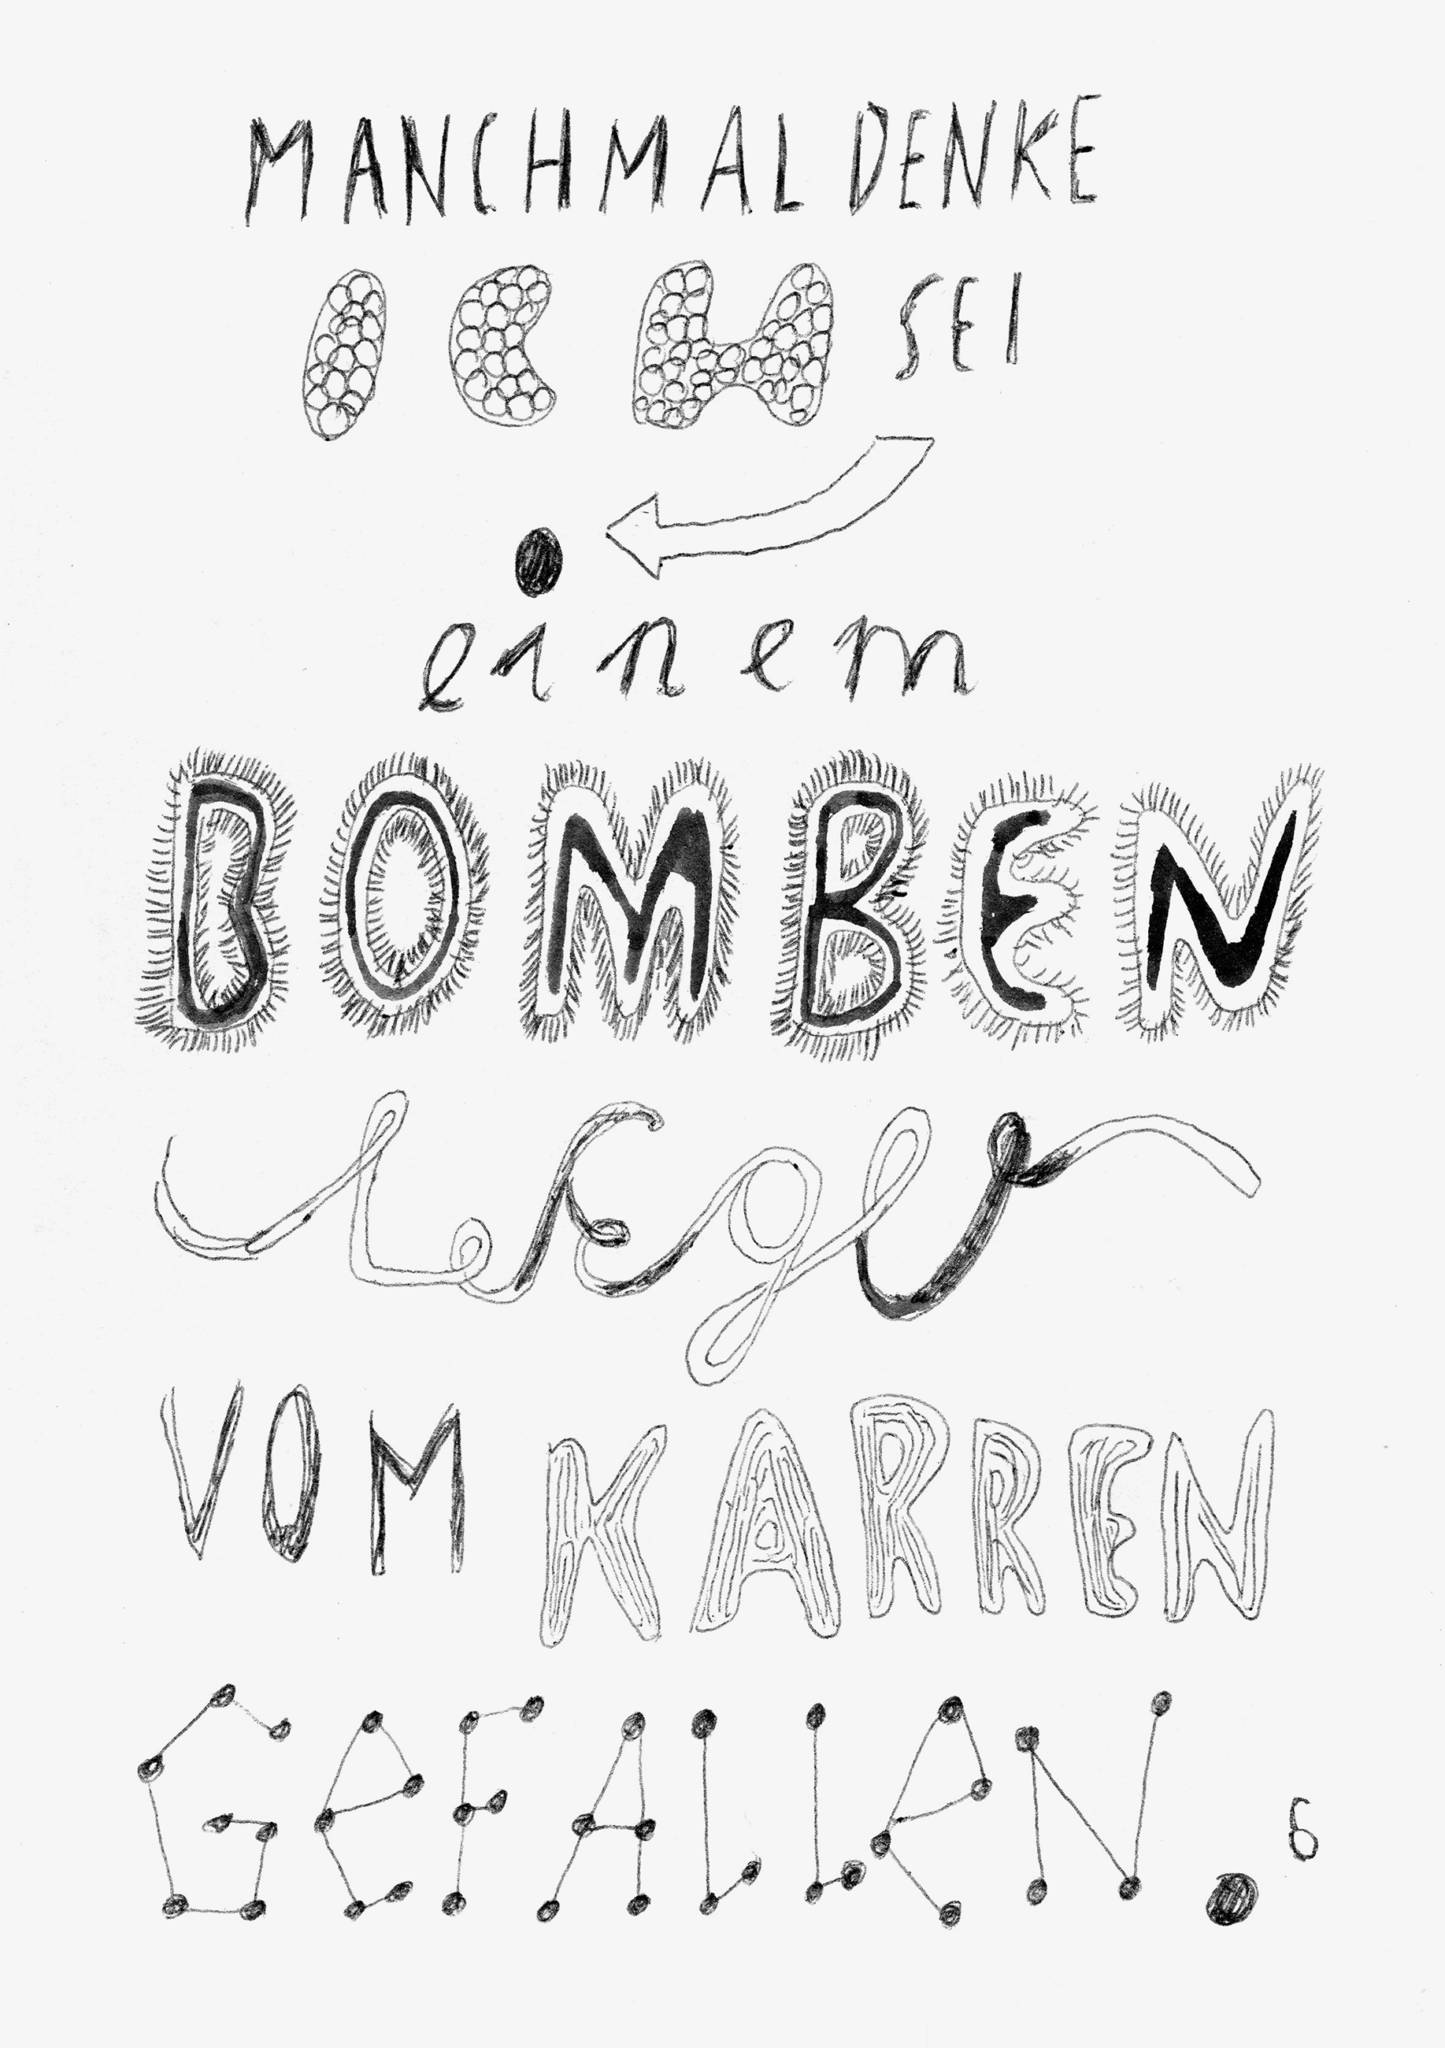 MANCHMAL DENKE
ICH SEI
einem
BOMBEN
LEge
VOM KARREN
GeFALLEN. 6